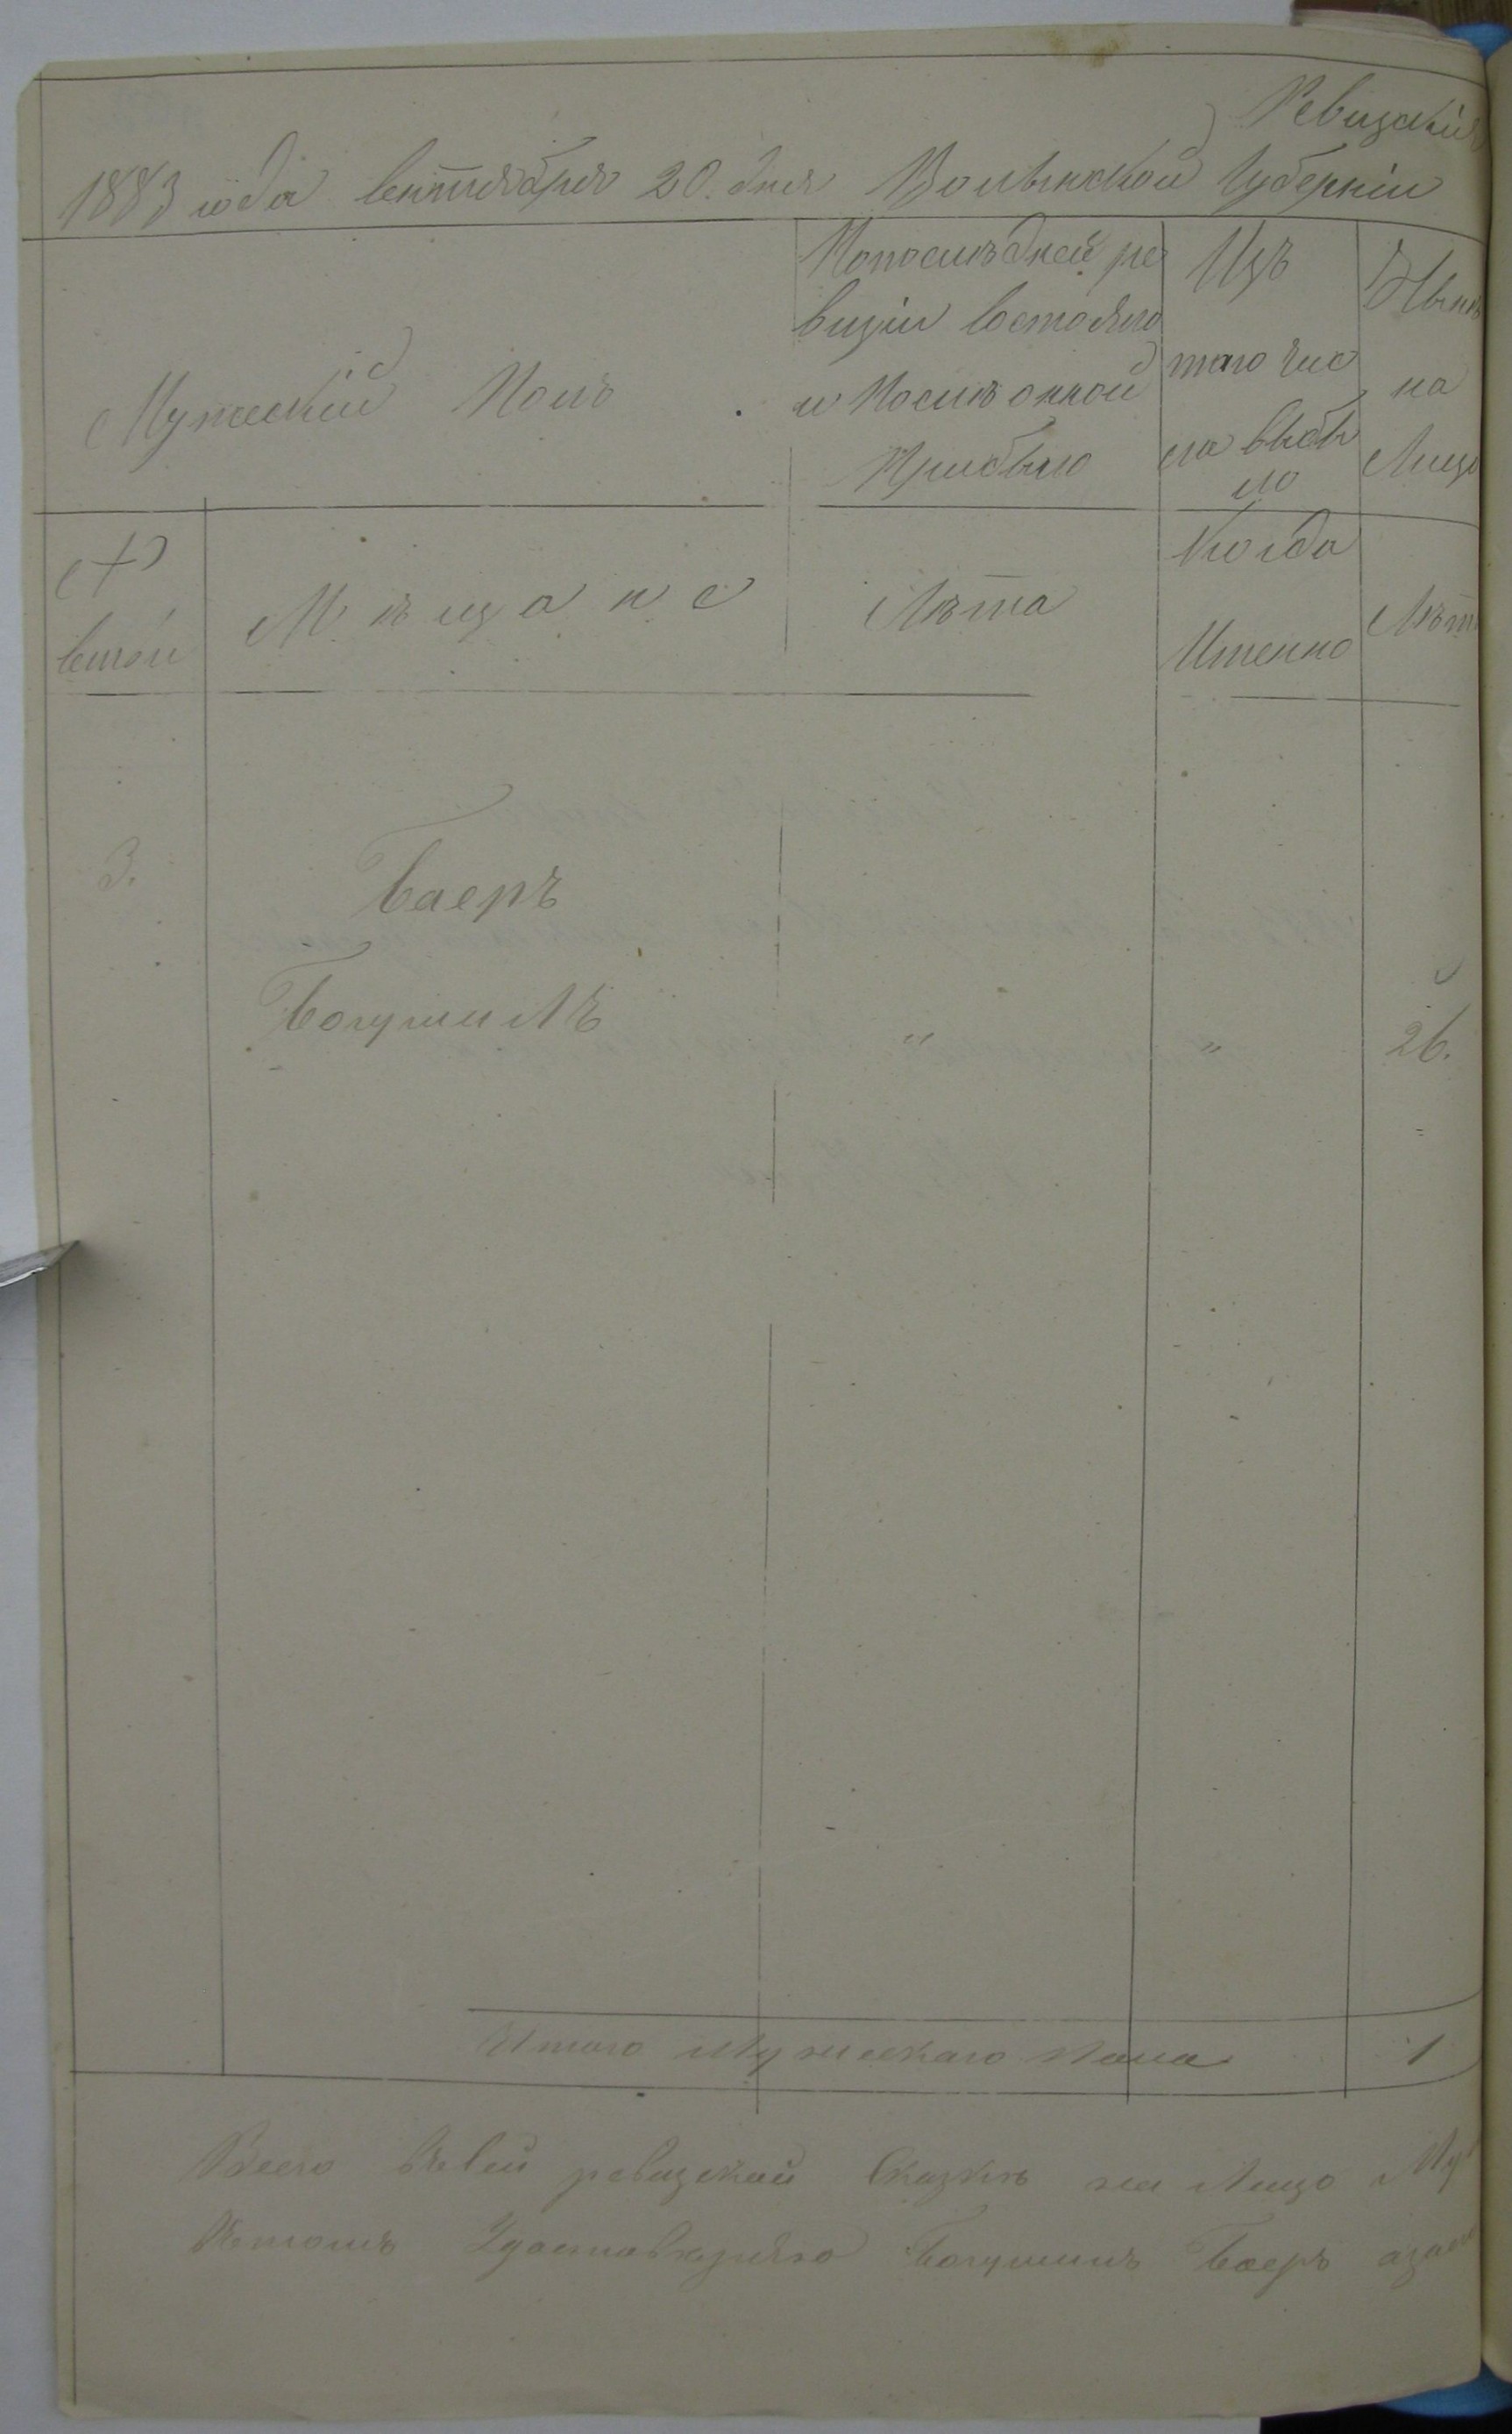 Ревизкія
1883 года Сентября 20. дня Волынской Губерніи
Мужескій Полъ
Попослѣдней ре
визіи Состояло
и Послѣ онной
Прибыло
Изъ
того чис
ла выбы
ло
Нынѣ
на
Лицо
Семьи
Мѣщане
Лѣта
Когда
Именно
Лѣт
3.
Баеръ
Богумилъ " " 26.
Итого Мужескаго Пола 1
Всего въ Сей ревизской Сказкѣ на Лицо Му
Вътомъ Удостовѣряю Богумилъ Баеръ азаего